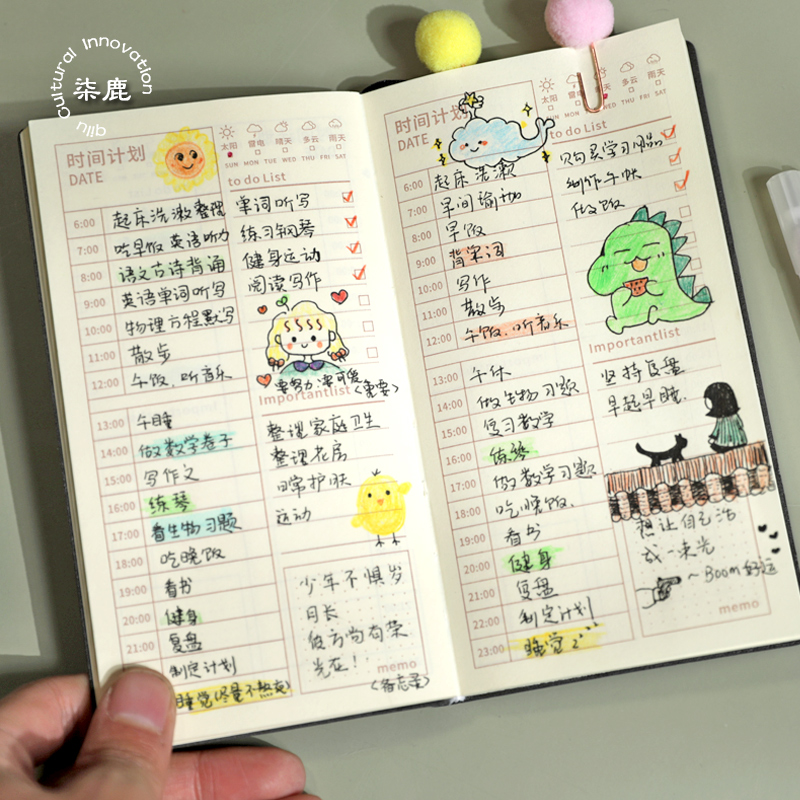 Cultural Innovation
qilu
柒鹿
时间计划
DATE
太阳 雷电 晴天 多云 雨天
SUN MON TUE WED THU FRI SAT
to do List
6:00 起床洗漱整理
7:00 吃早饭 英语听力
8:00 语文古诗背诵
9:00 英语单词听写
10:00 物理方程默写
11:00 散步
12:00 午饭.听音乐
单词听写
练习钢琴
健身运动
阅读写作
要努力 要可爱
Importantlist (重要)
13:00 午睡
14:00 做数学卷子
15:00 写作文
16:00 练琴
17:00 看生物习题
18:00 吃晚饭
19:00 看书
20:00 健身
21:00 复盘
制定计划
睡觉(尽量不熬夜)
整理家庭卫生
整理衣房
日常护肤
运动
少年不惧岁
月长
彼方尚有荣
光在!
memo
(备忘录)
时间计划
DATE
太阳 雷电 多云 雨天
SUN MON WED THU FRI SAT
to do List
6:00 起床洗漱
7:00 早间瑜伽
8:00 早饭
9:00 背单词
10:00 写作
11:00 散步
12:00 午饭.听音乐
购买学习用品
制作午帐
做饭
Importantlist
13:00 午休
14:00 做生物习题
15:00 复习数学
16:00 练琴
17:00 做数学习题
18:00 吃晚饭.
19:00 看书
20:00 健身
21:00 复盘
22:00 制定计划
23:00 睡觉 z
坚持复盘
早起早睡.
想让自己活
成一束光
~Boom好运
memo